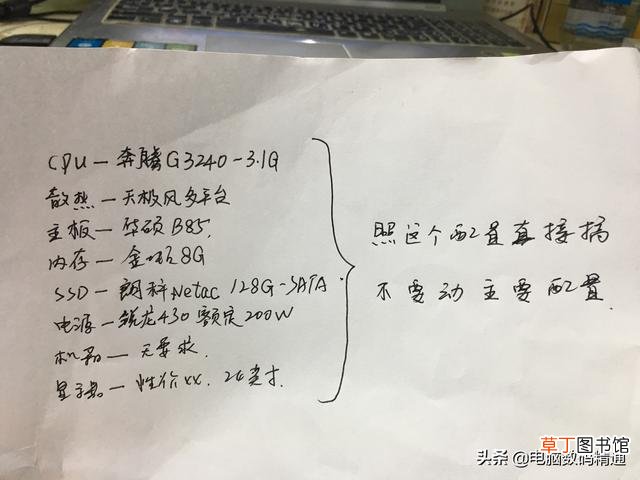 CPU—奔腾G3240-3.1G
散热—天极风多平台
主板—华硕B85.
内存—金士顿8G
SSD—朗科Netac 128G-SATA.
电源—锐龙430额定200W
机箱—无要求.
显示器—性价xx. 24英寸.
照这个配置直接搞
不要动主要配置.
草丁图书馆
头条@电脑数码精通